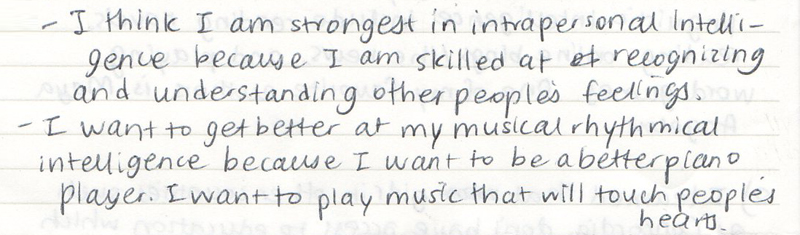 - I think I am strongest in intrapersonal Intelli-
gence because I am skilled at recognizing
and understanding other people's feelings.
- I want to get better at my musical rhythmical
intelligence because I want to be a better piano
player. I want to play music that will touch people's
heart.